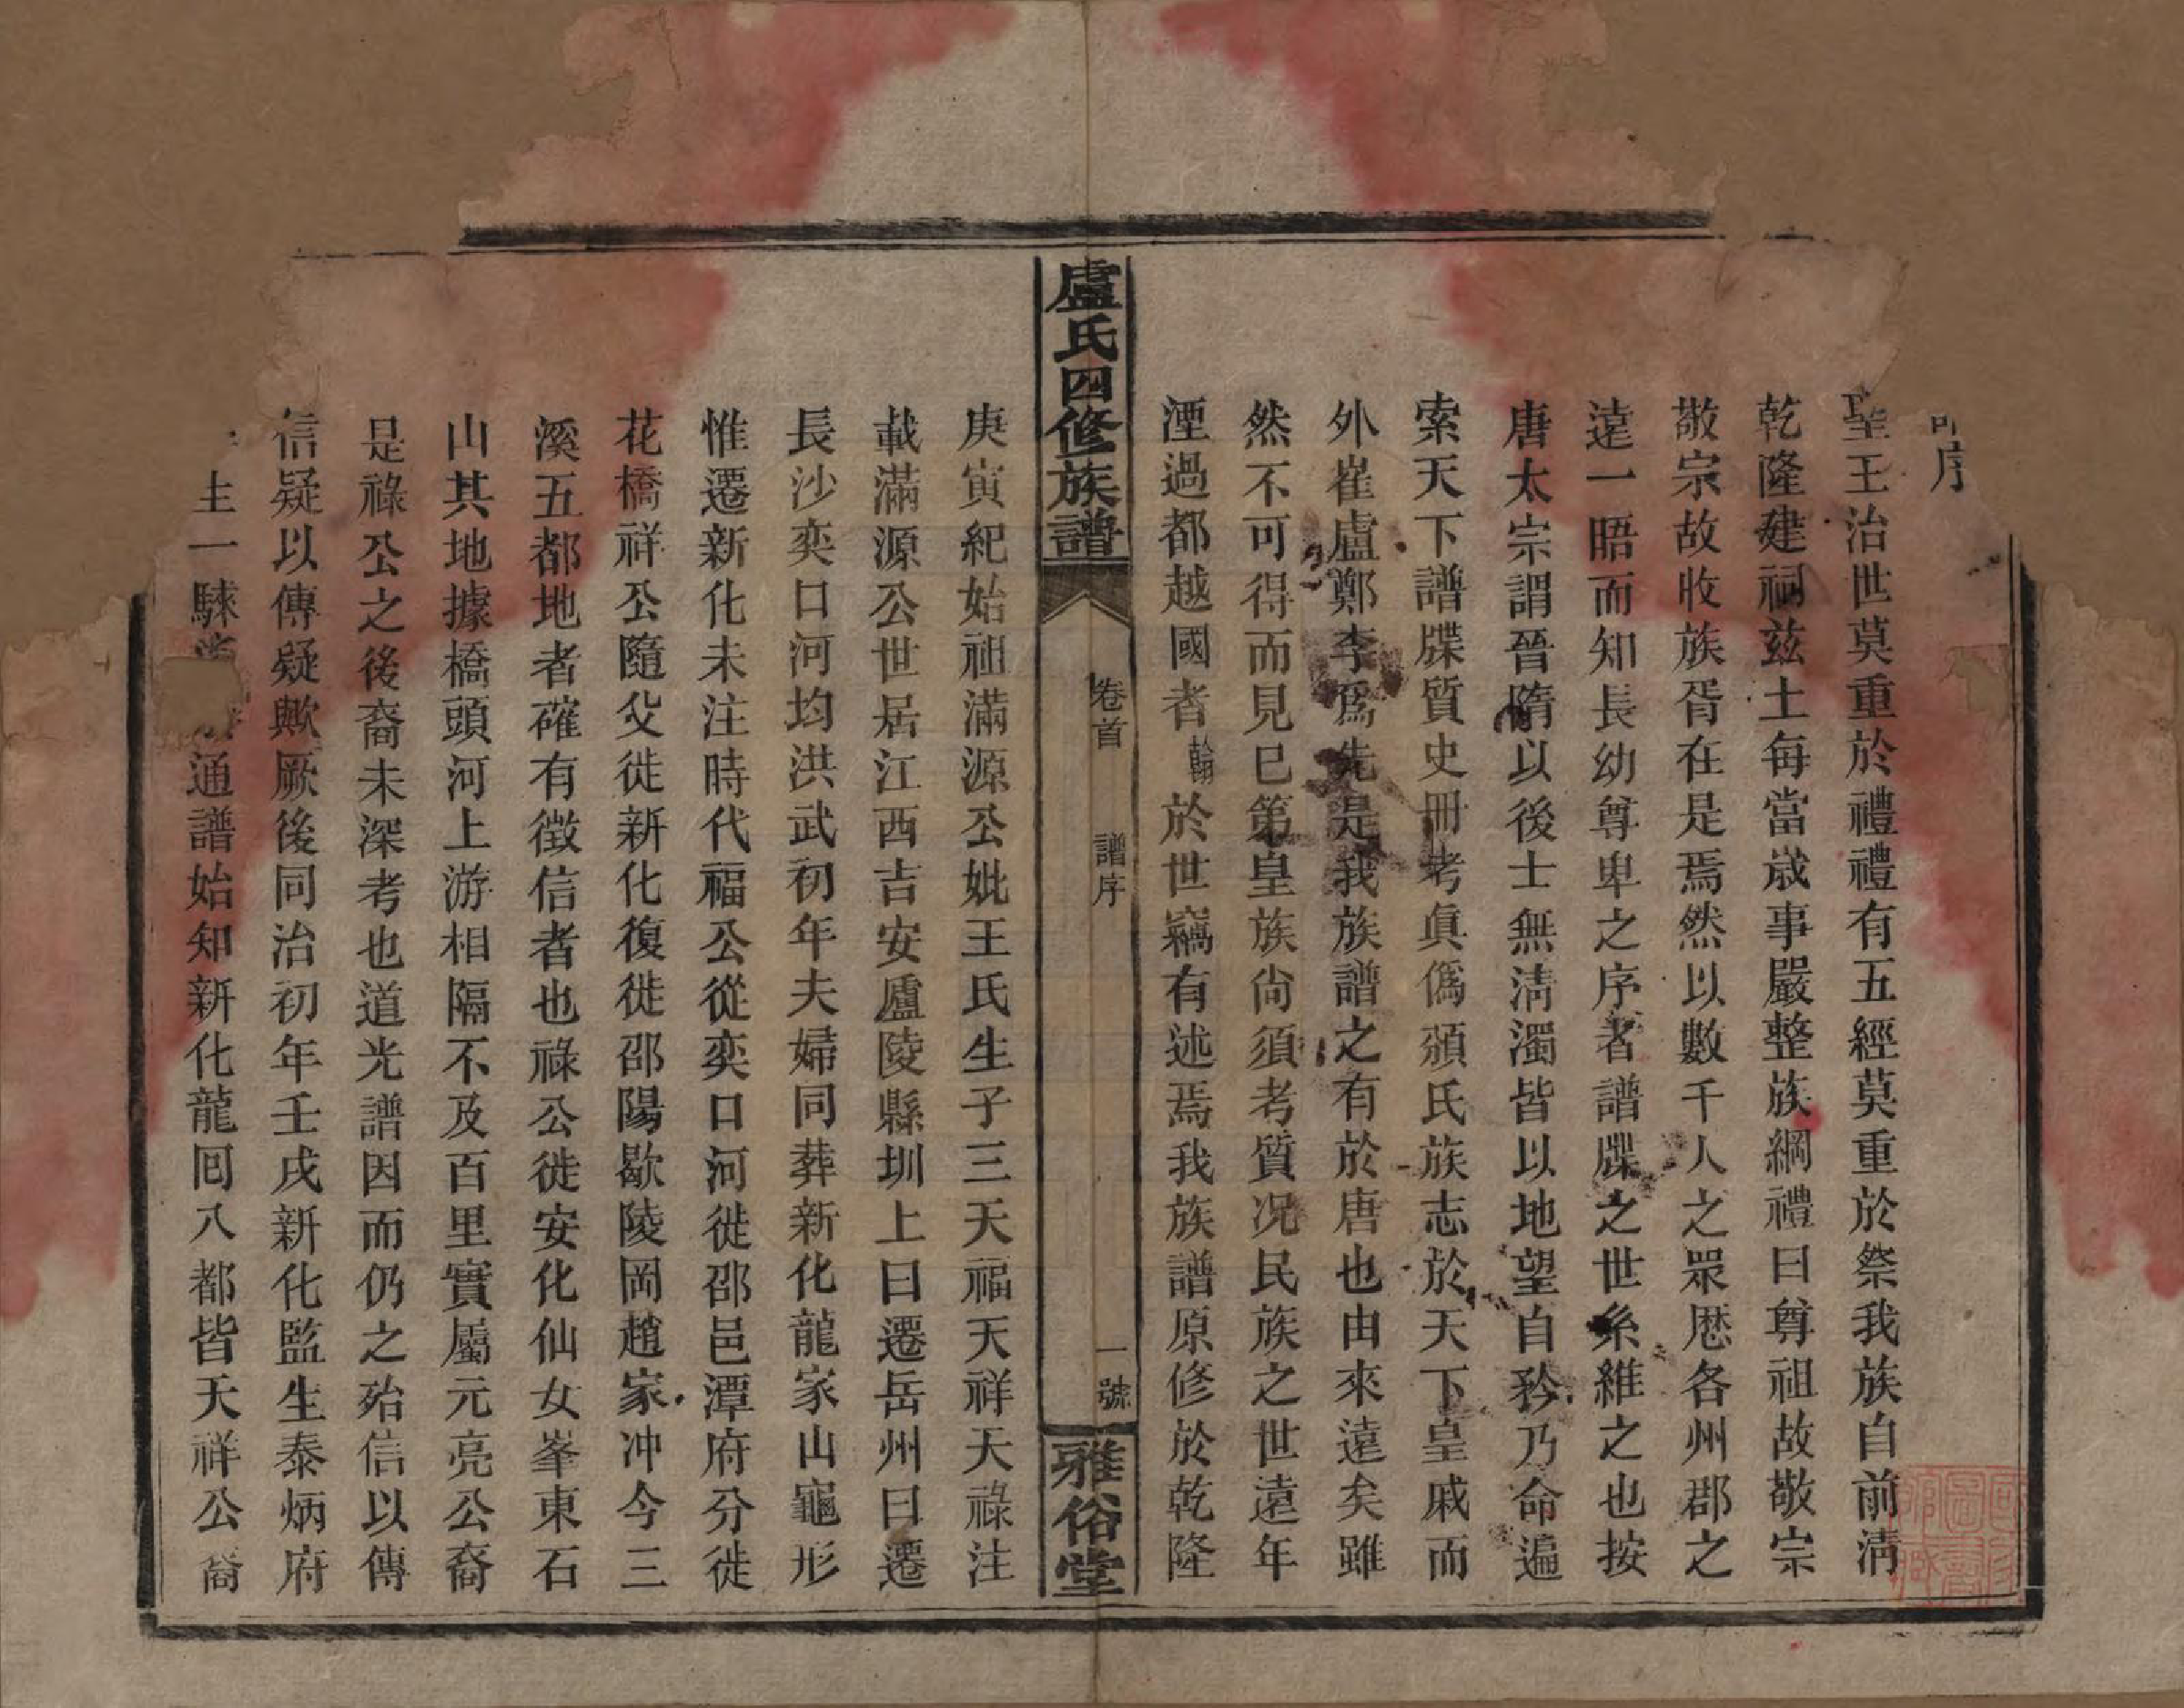 序
聖王治世莫重於禮禮有五經莫重於祭我族自前清
乾隆建祠茲土每當歲事嚴整族綱禮曰尊祖故敬宗
敬宗故收族胥在是焉然以數千人之眾厯各州郡之
遠一晤而知長幼尊卑之序者譜牒之世系維之也按
唐太宗謂晉隋以後士無清濁皆以地望自矜乃命遍
索天下譜牒質史冊考眞僞頒氏族志於天下皇戚而
外崔盧鄭李爲先是我族譜之有於唐也由來遠矣雖
然不可得而見已第皇族尙須考質况民族之世遠年
湮過都越國者翰於世竊有述焉我族譜原修於乾隆
盧氏四修族譜 卷首 譜序 一號 雅俗堂
庚寅紀始祖滿源公妣王氏生子三天福天祥天祿注
載滿源公世居江西吉安廬陵縣圳上曰遷岳州曰遷
長沙奕口河均洪武初年夫婦同葬新化龍家山龜形
惟遷新化未注時代福公從奕口河徙邵邑潭府分徙
花橋祥公隨父徙新化復徙邵陽歇陵岡趙家冲今三
溪五都地者確有徵信者也祿公徙安化仙女峯東石
山其地據橋頭河上游相隔不及百里實屬元亮公裔
是祿公之後裔未深考也道光譜因而仍之殆信以傳
信疑以傳疑歟厥後同治初年壬戌新化監生泰炳府
主一騋通譜始知新化龍囘八都皆天祥公裔